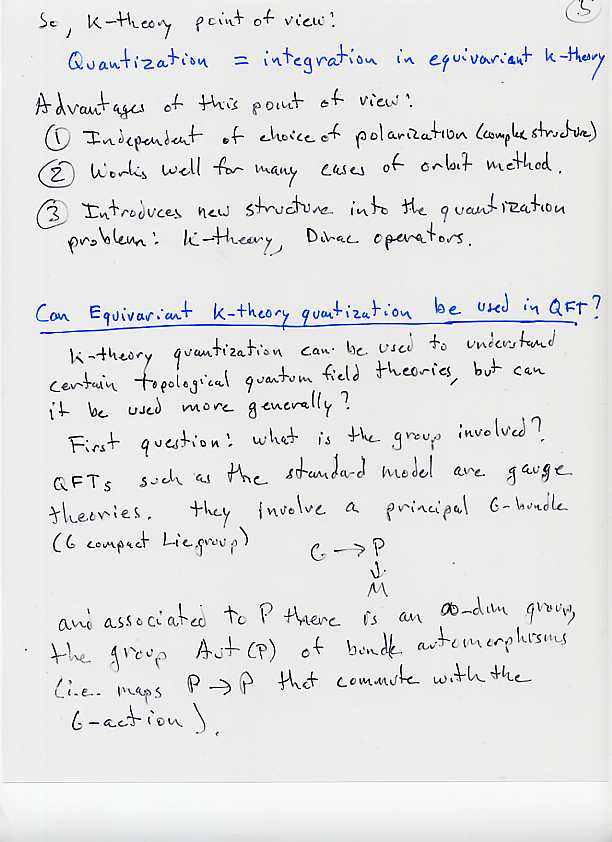 5
So, K-theory point of view:
Quantization = integration in equivariant K-theory
Advantages of this point of view:
① Independent of choice of polarization (complex structure)
② Works well for many cases of orbit method.
③ Introduces new structure into the quantization
problem: K-theory, Dirac operators.
Can Equivariant K-theory quantization be used in QFT?
K-theory quantization can be used to understand
certain topological quantum field theories, but can
it be used more generally?
First question: what is the group involved?
QFTs such as the standard model are gauge
theories. They involve a principal G-bundle
(G compact Lie group) G → P
↓
M
and associated to P there is an ∞-dim group,
the group Aut (P) of bundle automorphisms
(i.e. maps P → P that commute with the
G-action).